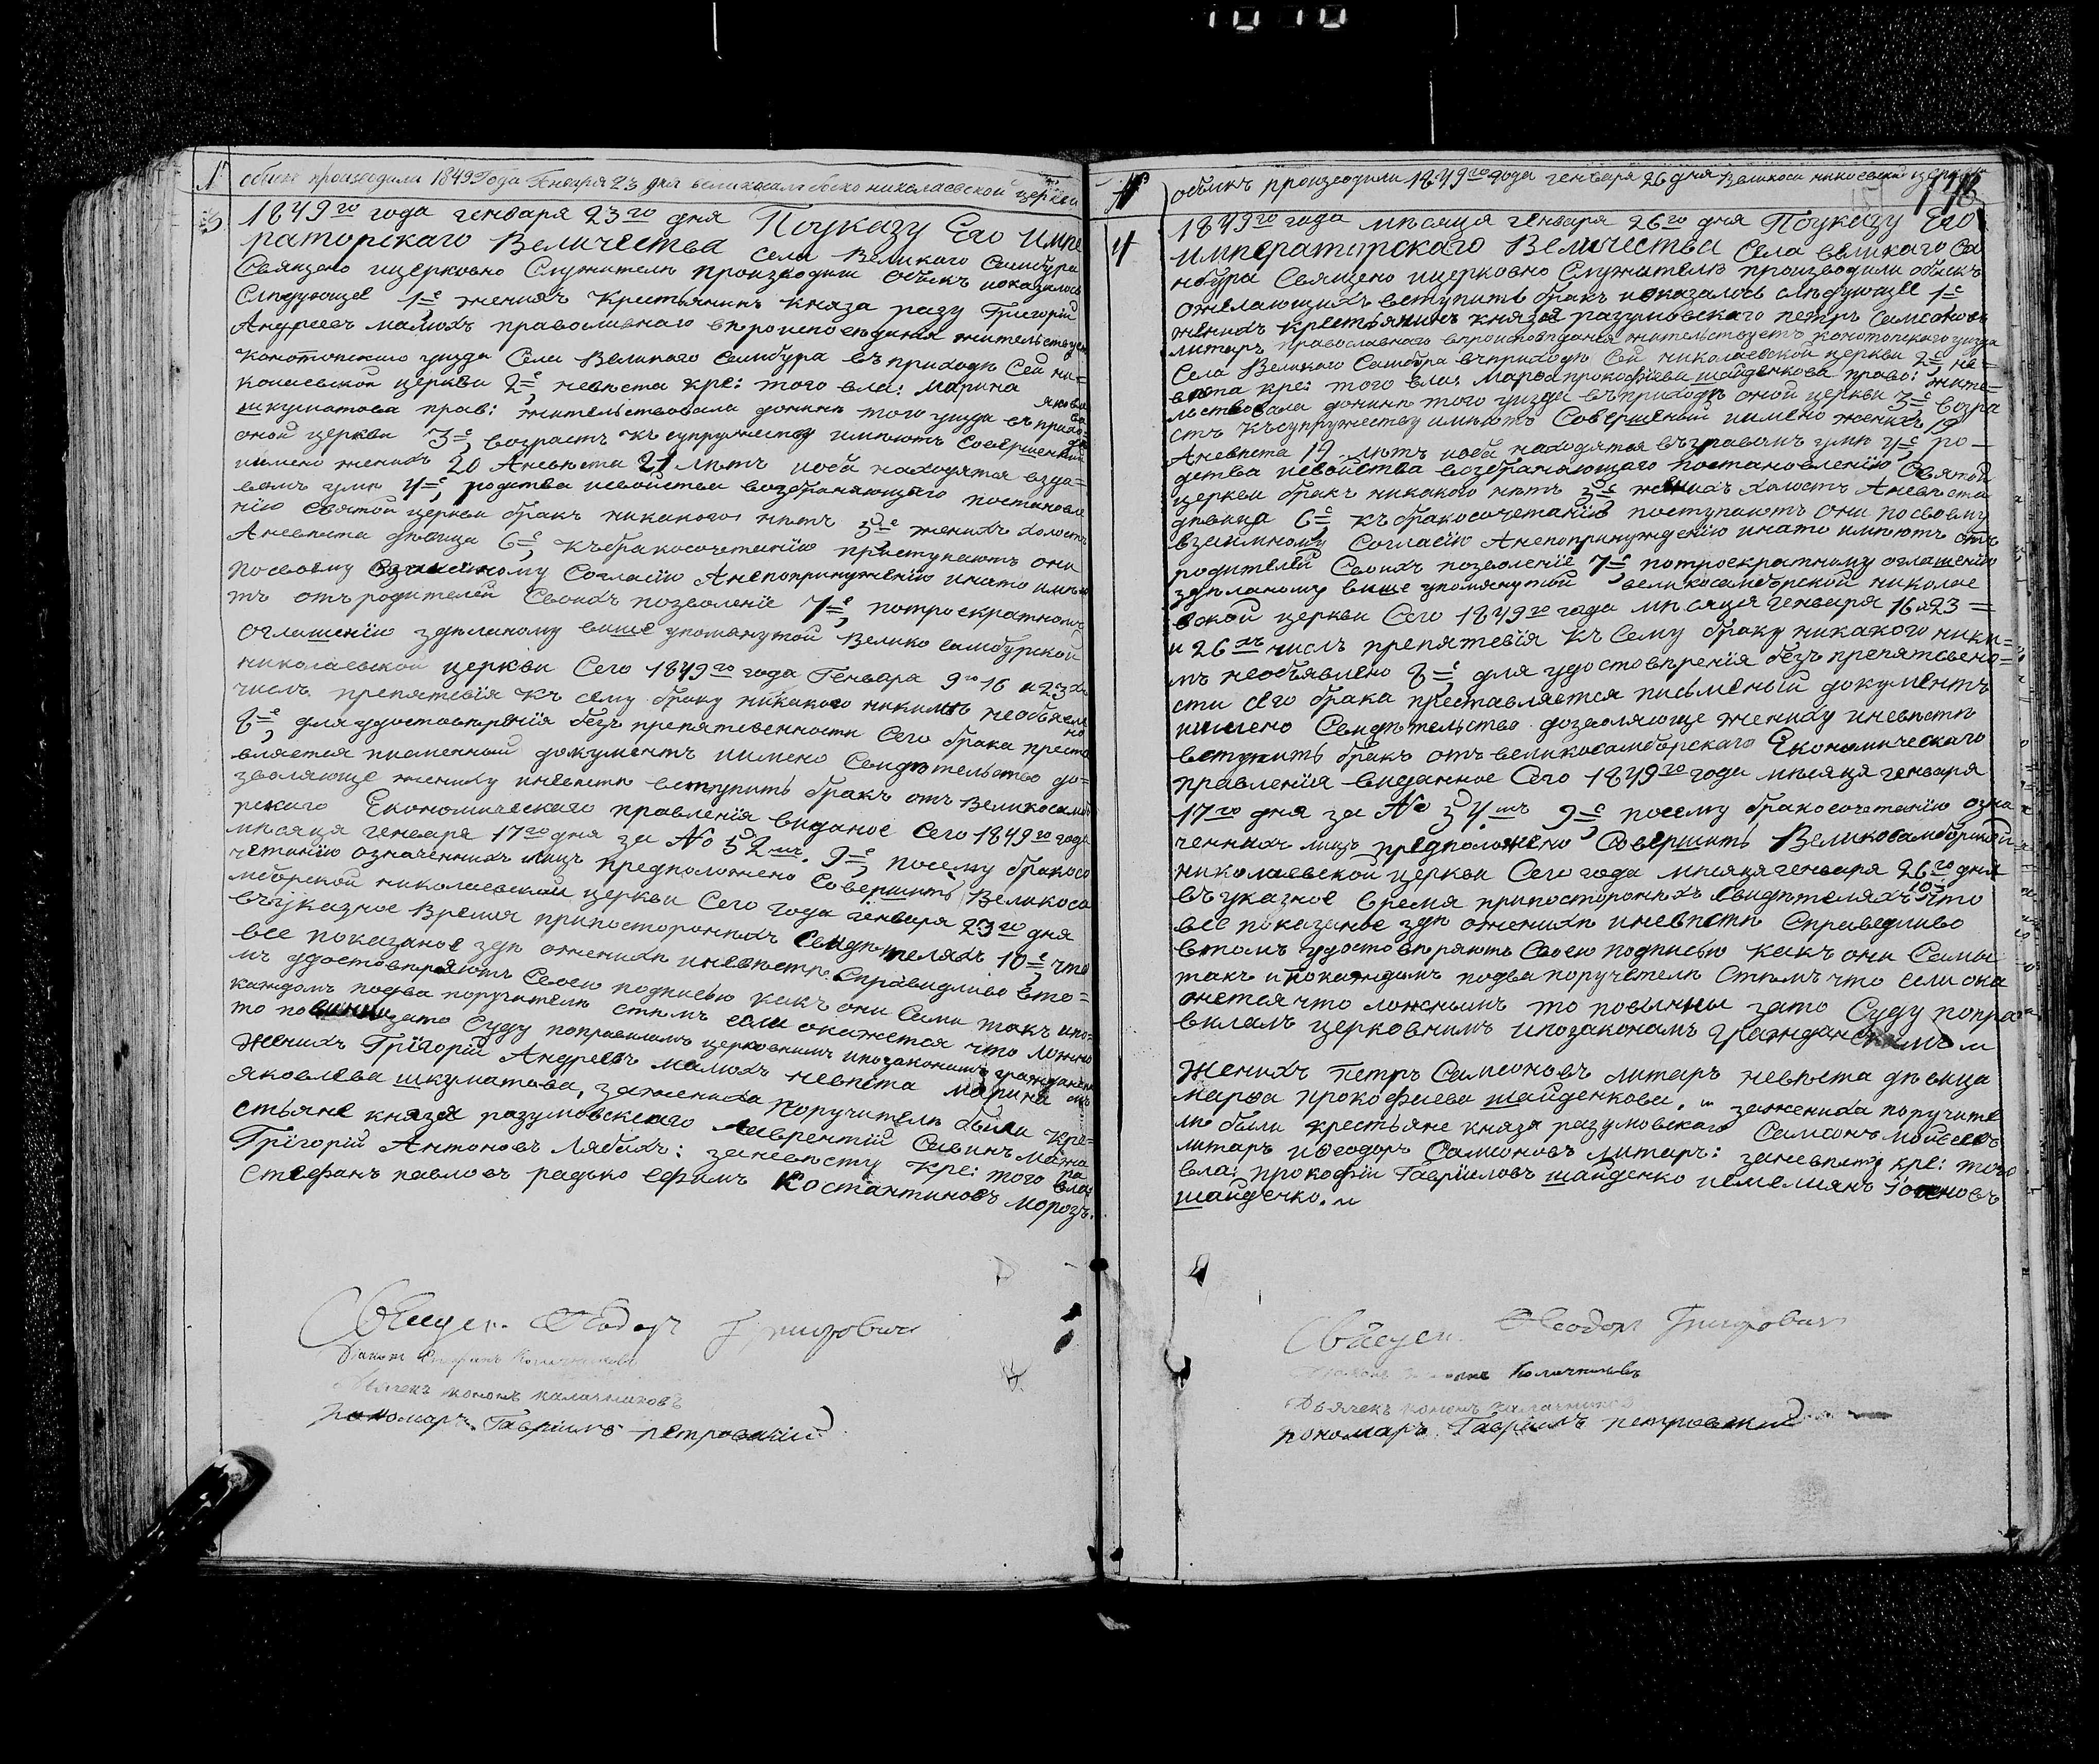 №
обыкъ производили 1849 Года Генваря 23 дня великосамбоско николаевской церкви
3
1849го года генваря 23го дня Поуказу Его Импе
раторскаго Величества села Великого Самбура
Священо ицерковно Служители производили обыскъ показалось
Следующее 1=е женихъ Крестьянинъ Князя разу Григорій
Андреевъ малюхъ православнаго вѣроисповѣданія жительствуетъ
Конотопскаго уѣзда Села Великаго Самбура въ приходѣ Сей ни=
колаевской церкви 2=е невѣста кре: того вла: Марина яковле
ва
шкуматова прав: жительствовала донинѣ того уѣзда въ прихо
дѣ
оной церкви 3=е возрастъ къ супружеству имѣютъ Совершенный
иимено женихъ 20 Аневѣста 21 лѣтъ иоба находятся вздра=
вомъ умѣ 4=е родства исвойства возбраняющаго постановле
нію святой церкви бракъ никакого нѣтъ 5=е женихъ холостъ
Аневѣста дѣвица 6=е къбракосочетанію приступаютъ они
посвоему взаимному Согласію Анепопринужденію инато имѣю
тъ отъ родителей Своихъ позволеніе 7=е, потроекратному
оглашенію здѣланому више упомянутой Велико самбурской
николаевской церкви Сего 1849го года Генваря 9го 16 и 23хъ
числъ препятсвія къ сему браку никакого никимъ необъявле
но
8=е, для удостовѣренія безъ препятсвенности Сего брака предста
вляется писменный документъ иимено Свидѣтельство до=
зволяюще жениху иневѣсте вступить бракъ отъ Великосамбо
рскаго Економическаго правленія виданое Сего 1849го года
мѣсяца генваря 17го дня за № 52мъ. 9=е, посему бракосо
четанію означенныхъ лицъ предположено Совершить Великоса
мборской николаевской церкви Сего года генваря 23го дня
въуказное Время припостороннихъ Свидѣтеляхъ 10=е, что
все показаное здѣ ожениху иневѣстѣ Справидливо вто=
мъ удостовѣряютъ Своею подписью какъ они Сами такъ ипо=
каждомъ подва поручителѣ стѣмъ если окажется что ложно
то повинни зато Суду поправиламъ церковнимъ изаконамъ гражданск
имъ
Женихъ Григорій Андреевъ малюхъ невѣста марина
яковлева шкуматова, зажениха Поручители были кре=
стьяне князя разумовскаго Лаврентій Савинъ мажа
Григорій Антоновъ Лябахъ: заневѣсту кре: того вла:
Стефанъ павловъ радько ефимъ Костантиновъ морозъ.
Священ. Ѳеодоръ Григровичъ
Діаконъ Стефанъ Калачниковъ
Дьячекъ кононъ калачниковъ
пономаръ Гавриилъ петровскій
№
обыкъ производили 1849го года генваря 26 дня Великоса николаевской церкви
4
1849го года мѣсяца генваря 26го дня Поуказу Его
Императорскаго Величества Села великаго Са
мбура Священо ицерковно Служители производили обыскъ
ожелающихъ вступить бракъ показалось слѣдующее 1=е
женихъ крестьянинъ князя разумовскаго петръ Самсоновъ
литаръ православнаго вѣроисповѣданія жительствуетъ конотопскаго уѣзда
Села Великаго Самбура въприходѣ Сей николаевской церкви 2=е не=
вѣста кре: того вла: Марѳа прокофіева шайденкова право: жите=
льствовала донинѣ того уѣзда въприходѣ оной церкви 3=е возра
стъ къ супружеству имѣютъ Совершеный иимено женихъ 19
Аневѣста 19 лѣтъ иоба находятся въздравомъ умѣ 4=е ро=
дства исвойства возбраняющаго постановленію Святой
церкви бракъ никакого нѣтъ 5=е женихъ холостъ Аневѣста
дѣвица 6=е къ бракосочетанію поступаютъ они посвоему
взаимному Согласію Анепопринужденію инато имѣютъ отъ
родителей Своихъ позволеніе 7=е потроекратному оглашенію
здѣланому више упомянутой великосамборской николае
вской церкви Сего 1849го года мѣсяца генваря 16 23=
и 26хъ числъ препятсвія къ Сему браку никакого ники=
мъ необъявлено 8=е, для удостовѣренія безъ препятсвено=
сти сего брака преставляется писменый документъ
иимено Свидѣтельство дозволяюще жениху иневѣсте
вступить бракъ отъ великосамборскаго Економическаго
правленія виданное Сего 1849го года мѣсяца генваря
17го дня за № 54мъ 9=е посему бракосочетанію озна
ченныхъ лицъ предположено Совершить Великосамборской
николаевской церкви Сего года мѣсяца генваря 26го дня
въ указное время припостороннихъ Свидѣтеляхъ 10=е что
все показаное здѣ оженихѣ иневѣстѣ Справедливо
втомъ удостовѣряютъ Своею подписью какъ они Сами
такъ и покаждомъ подва поручителѣ стѣмъ что если ока
жется что ложнымъ то повынны зато Суду попра
виламъ церковнимъ ипозаконамъ гражданскимъ
Женихъ петръ Самсоновъ литаръ невѣста дѣвица
марѳа прокофіева шайденкова. зажениха поручите
ли были крестьяне князя разумовскаго Самсонъ мойсеевъ
литаръ иѳеодоръ Самсоновъ литаръ: заневѣсту кре: того
вла: прокофій Гавріиловъ шайденко иемелиянъ Іоановъ
шайденко.
Священ. Ѳеодоръ Григровичъ
Діаконъ Калачниковъ
Дьячекъ кононъ калачниковъ
пономаръ Гавриилъ петровскій